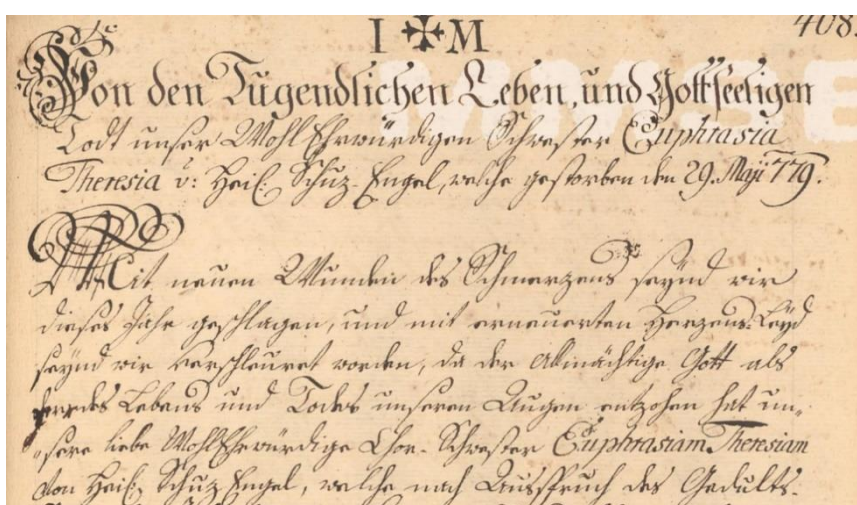 408.
I ✠ M
Von den Tugendlichen Leben, und Gottseeligen
Todt unser WohlEhrwürdigen Schwester Euphrasia
Theresia v: Heil: Schuz-Engel, welche gestorben den 29. Maji 779.
Mit neuen Wunden des Schmerzens seynd wir
dieses Jahr geschlagen, und mit erneuerten Herzens-Leyd
seynd wir worden, da der Allmächtige Gott als
des Lebens und Todes unseren Augen entzohen hat un-
sere liebe WohlEhrwürdige Chor-Schwester Euphrasiam Theresiam
von Heil: Schuz-Engel, welche nach Ausspruch des Gedults-